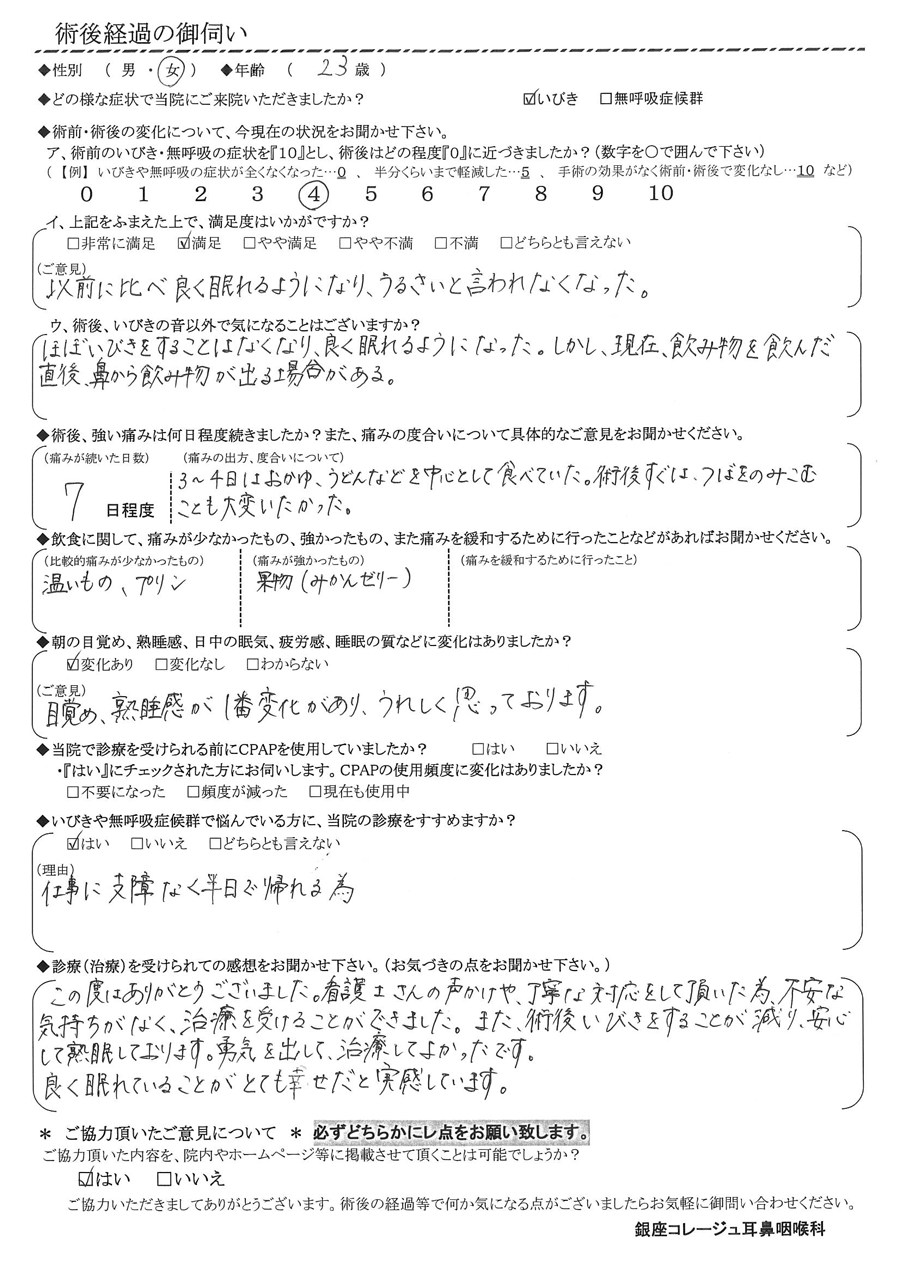 術後経過の御伺い
◆性別 ( 男 ・ 女 ) ◆年齢 ( 23 歳 )
◆どの様な症状で当院にご来院いただきましたか? ☑いびき □無呼吸症候群
◆術前・術後の変化について、今現在の状況をお聞かせ下さい。
ア、術前のいびき・無呼吸の症状を『10』とし、術後はどの程度『0』に近づきましたか?(数字を〇で囲んで下さい)
(【例】いびきや無呼吸の症状が全くなくなった…0 、 半分くらいまで軽減した…5 、 手術の効果がなく術前・術後で変化なし…10 など)
0 1 2 3 4 5 6 7 8 9 10
イ、上記をふまえた上で、満足度はいかがですか?
□非常に満足 ☑満足 □やや満足 □やや不満 □不満 □どちらとも言えない
(ご意見)
以前に比べ良く眠れるようになり、うるさいと言われなくなった。
ウ、術後、いびきの音以外で気になることはございますか?
ほぼいびきをすることはなくなり、良く眠れるようになった。しかし、現在、飲み物を飲んだ
直後、鼻から飲み物が出る場合がある。
◆術後、強い痛みは何日程度続きましたか?また、痛みの度合いについて具体的なご意見をお聞かせください。
(痛みが続いた日数) (痛みの出方、度合いについて)
3～4日はおかゆ、うどんなどを中心として食べていた。術後すぐは、つばをのみこむ
7 日程度 ことも大変いたかった。
◆飲食に関して、痛みが少なかったもの、強かったもの、また痛みを緩和するために行ったことなどがあればお聞かせください。
(比較的痛みが少なかったもの) (痛みが強かったもの) (痛みを緩和するために行ったこと)
温いもの、プリン 果物(みかんゼリー)
◆朝の目覚め、熟睡感、日中の眠気、疲労感、睡眠の質などに変化はありましたか?
☑変化あり □変化なし □わからない
(ご意見)
目覚め、熟睡感が1番変化があり、うれしく思っております。
◆当院で診療を受けられる前にCPAPを使用していましたか? □はい □いいえ
・『はい』にチェックされた方にお伺いします。CPAPの使用頻度に変化はありましたか?
□不要になった □頻度が減った □現在も使用中
◆いびきや無呼吸症候群で悩んでいる方に、当院の診療をすすめますか?
☑はい □いいえ □どちらとも言えない
(理由)
仕事に支障なく半日で帰れる為
◆診療(治療)を受けられての感想をお聞かせ下さい。(お気づきの点をお聞かせ下さい。)
この度はありがとうございました。看護士さんの声かけや、丁寧な対応をして頂いた為、不安な
気持ちがなく、治療を受けることができました。また、術後いびきをすることが減り、安心
して熟眠しております。勇気を出して、治療してよかったです。
良く眠れていることがとても幸せだと実感しています。
＊ ご協力頂いたご意見について ＊ 必ずどちらかにレ点をお願い致します。
ご協力頂いた内容を、院内やホームページ等に掲載させて頂くことは可能でしょうか?
☑はい □いいえ
ご協力いただきましてありがとうございます。術後の経過等で何か気になる点がございましたらお気軽に御問い合わせください。
銀座コレージュ耳鼻咽喉科